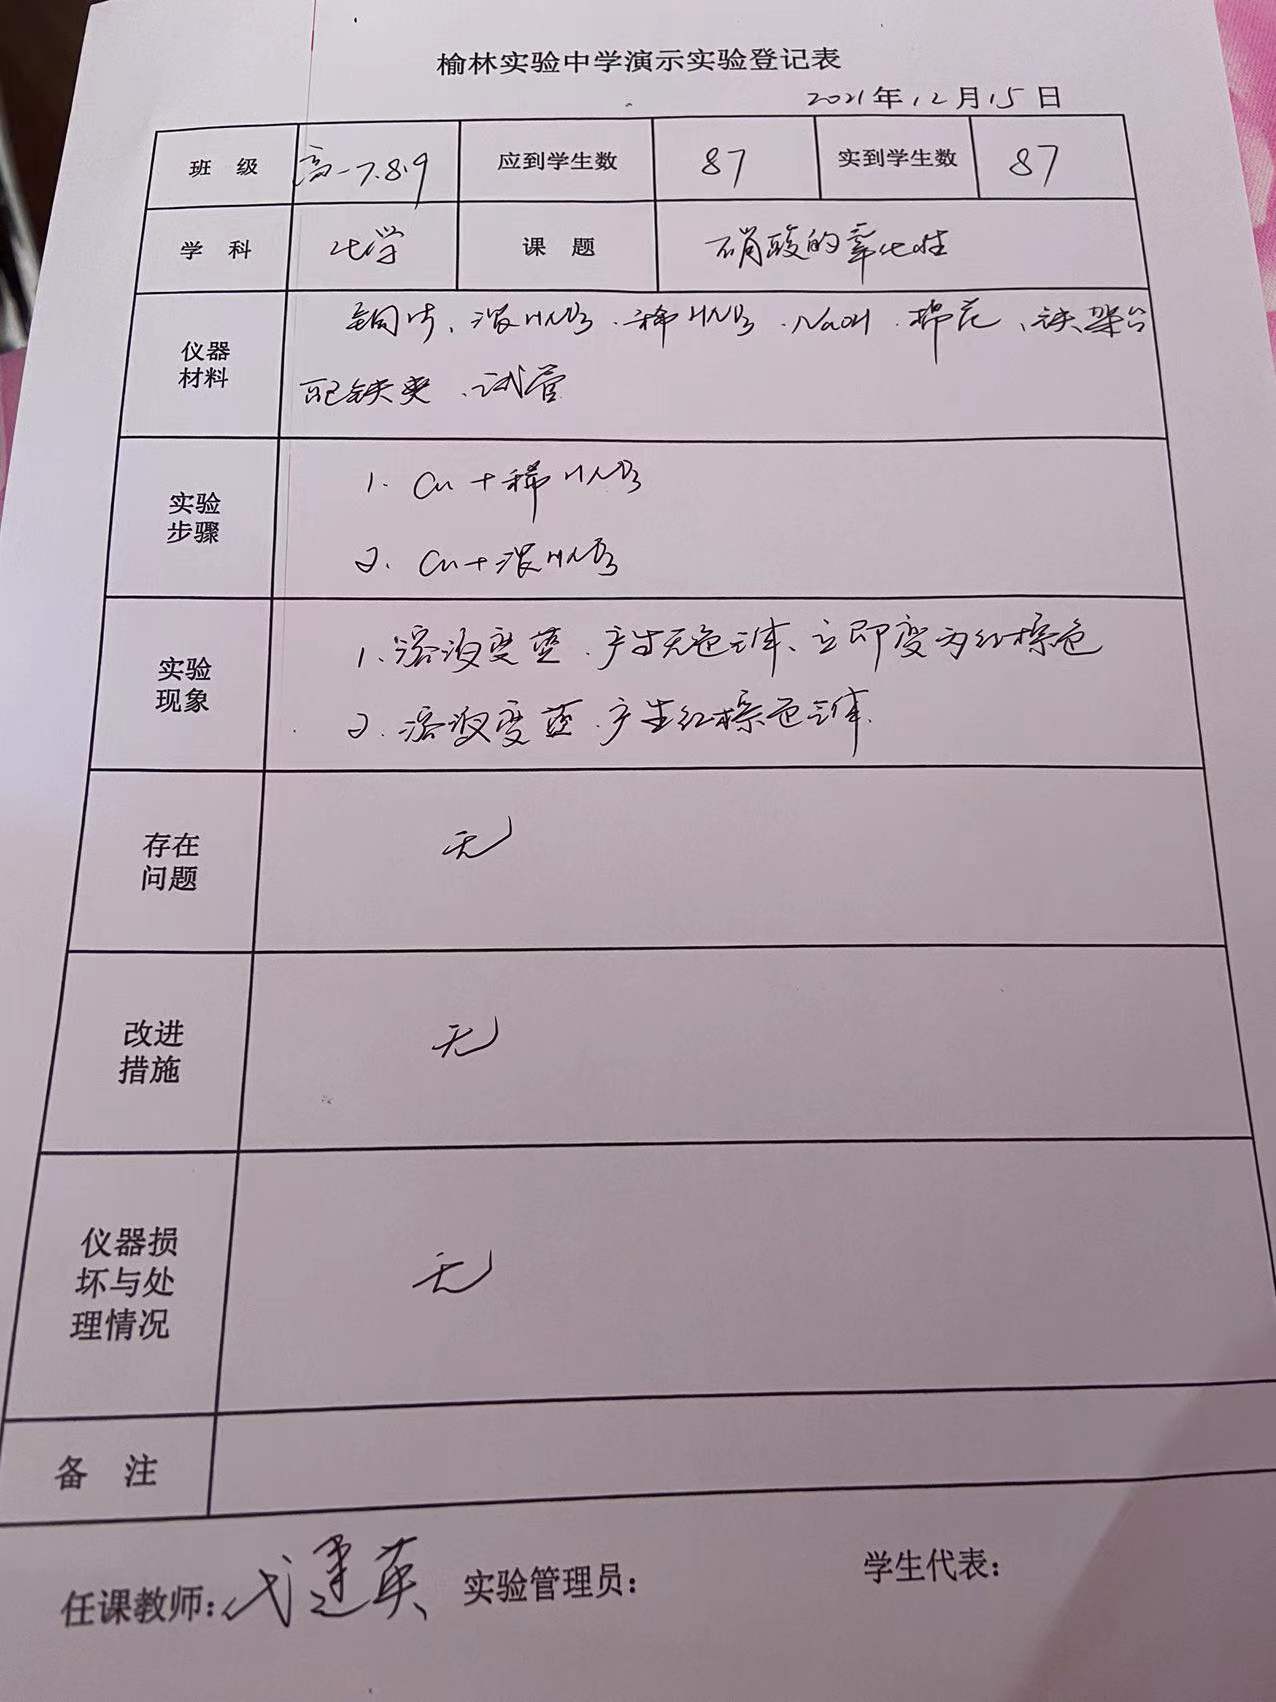 榆林实验中学演示实验登记表
2021年12月15日
班 级 高一7.8.9 应到学生数 87 实到学生数 87
学 科 化学 课 题 硝酸的氧化性
仪器材料 铜片、浓HNO3、稀HNO3、NaOH、棉花、铁架台
配铁夹、试管
实验步骤 1. Cu+稀HNO3
2. Cu+浓HNO3
实验现象 1.溶液变蓝、产生无色气体、立即变为红棕色
2.溶液变蓝、产生红棕色气体.
存在问题 无
改进措施 无
仪器损坏与处理情况 无
备 注
任课教师: 建英 实验管理员: 学生代表: